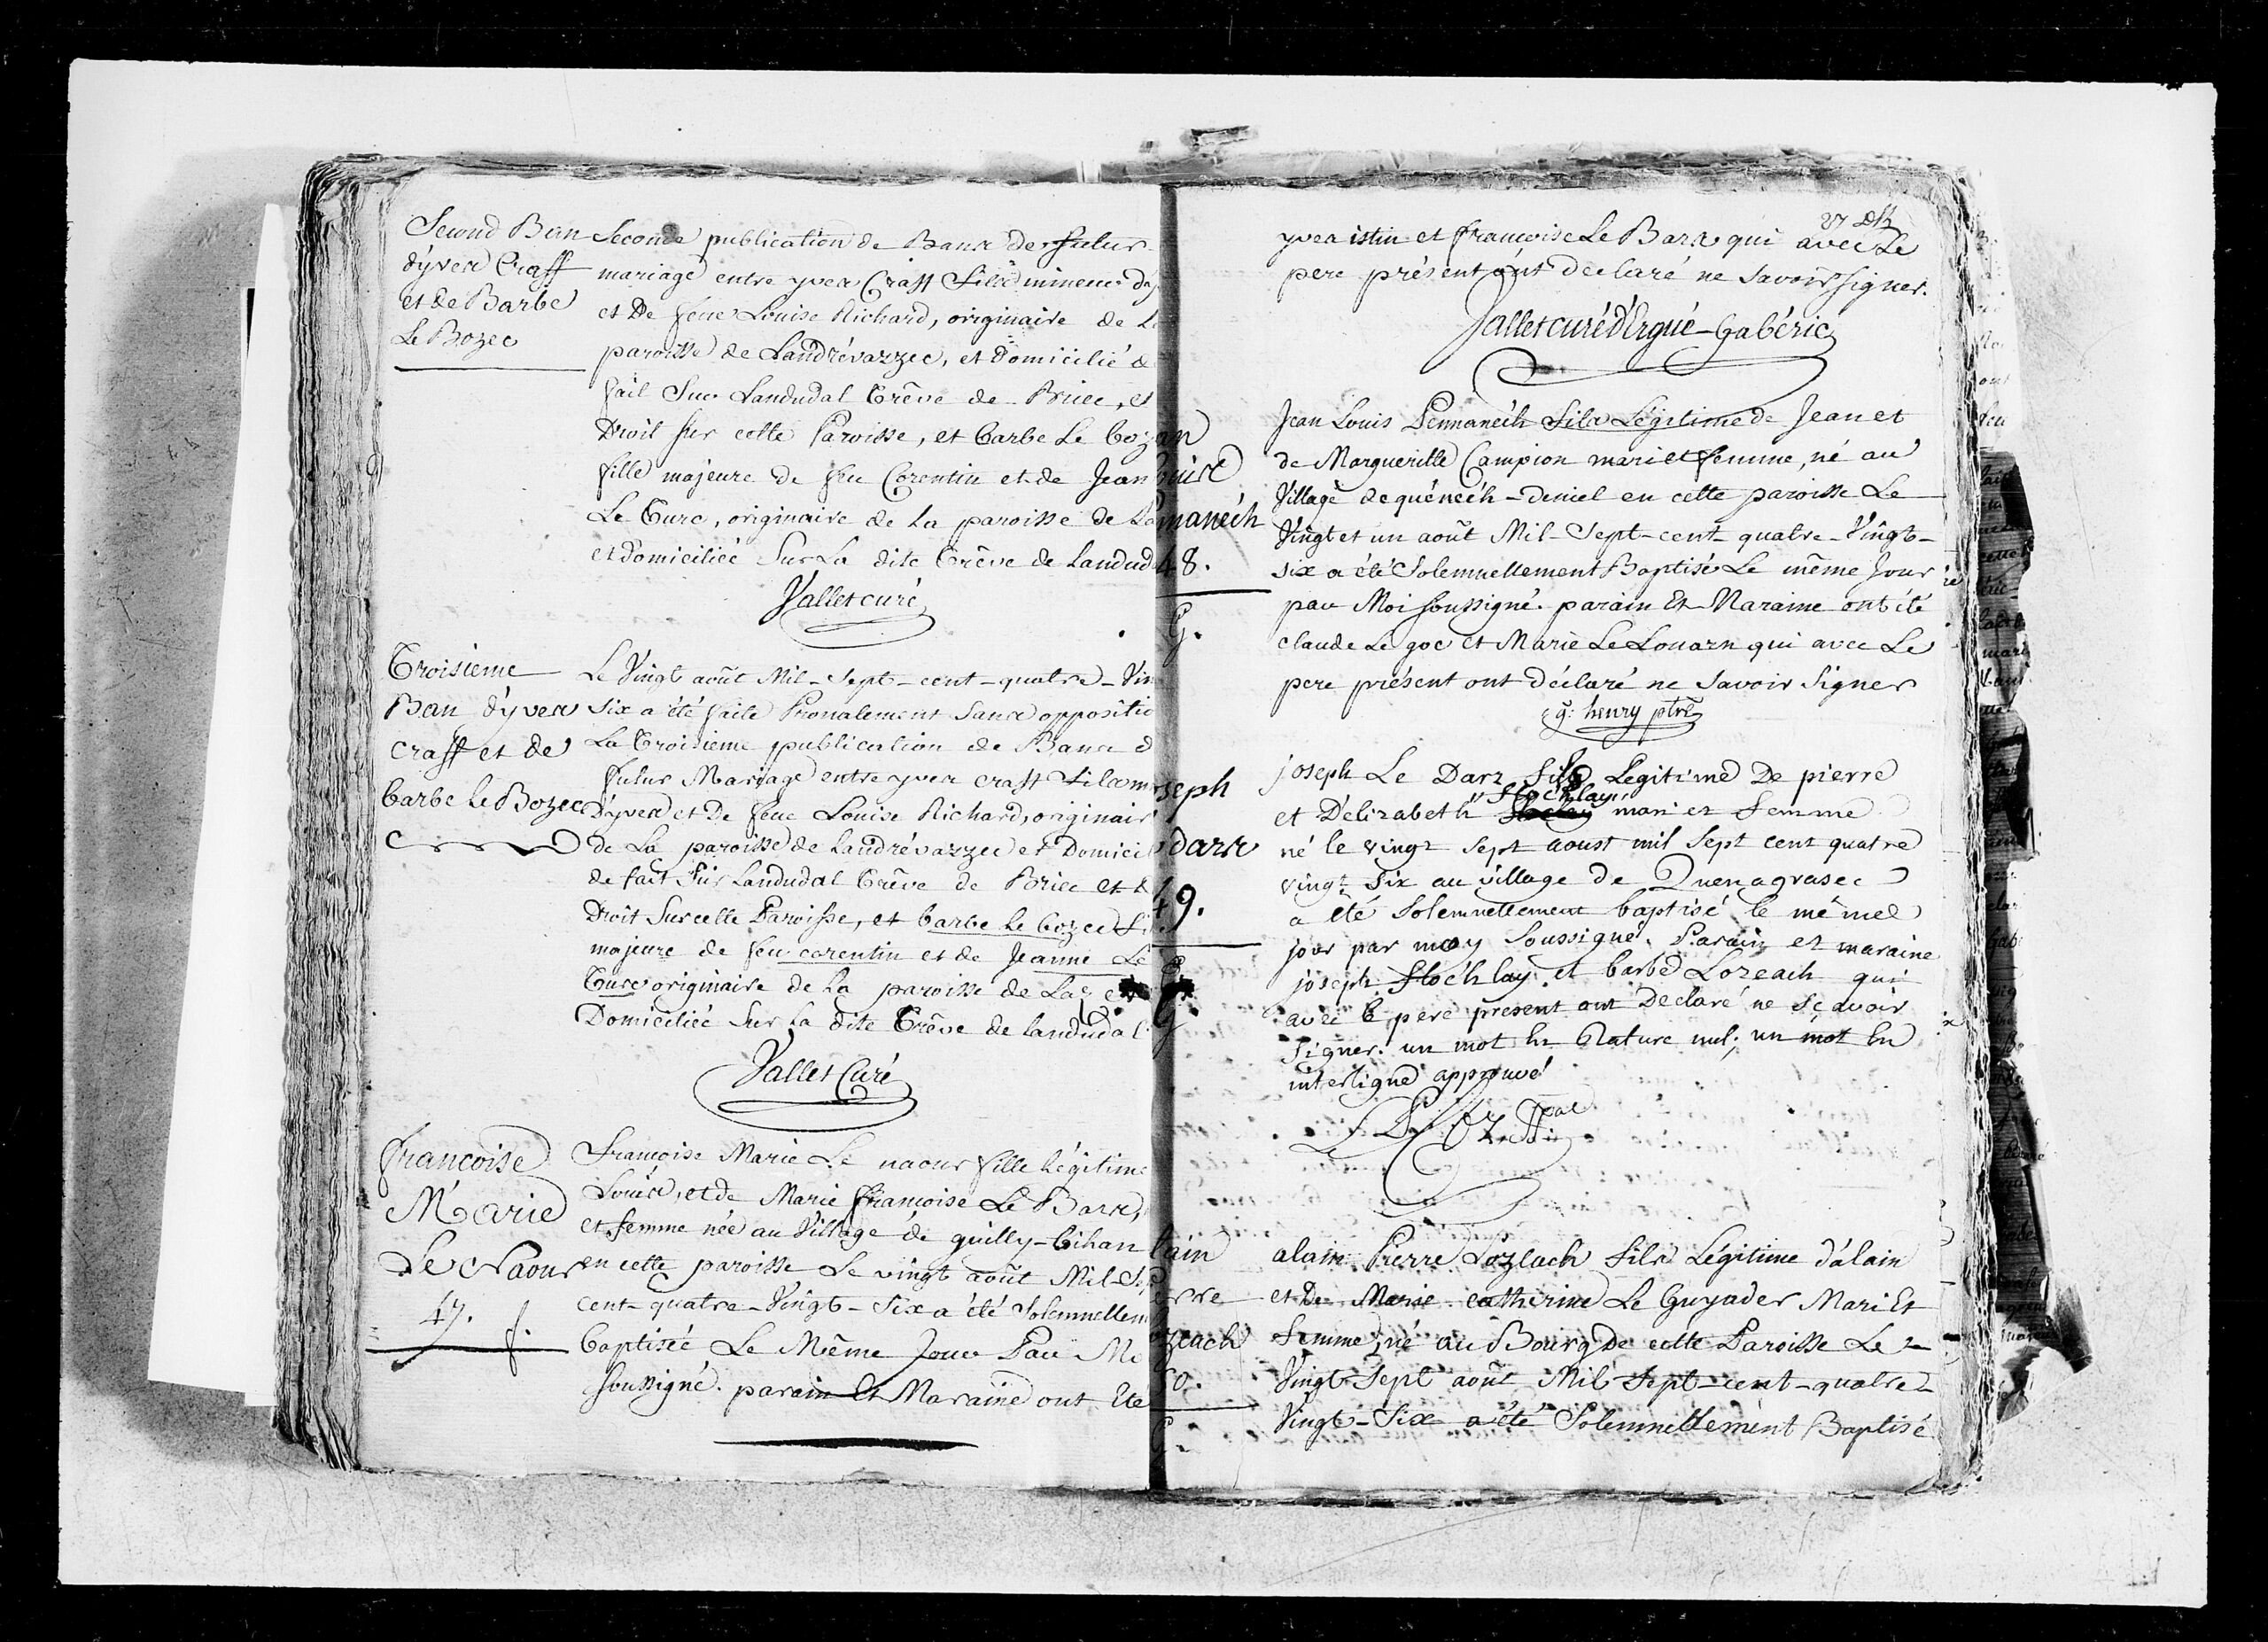 Second Ban
d'yves Craff
et de Barbe
Le Bozec
Seconde publication de Bans de futur
mariage entre yves Craff fils mineur d'y
et De feue Louise Richard, originaire de L
paroisse de Landrévarzec, et domicilié d
fait Sur Landudal trêve de Briec, et
Droit sur cette Paroisse, et barbe Le boz
fille majeure de feu Corentin et de Jean
Le Turc, originaire de La paroisse de La
et domiciliée Sur La dite trêve de Landud
Vallet curé
Troisieme
Ban d'yves
craff et de
barbe le Bozec
Le Vingt août Mil-Sept-cent-quatre-Vin
Six a été faite Pronalement Sans oppositio
La Troisieme publication de Bans d
futur Mariage entre yves craff fils m
d'yves et De feue Louise Richard, originair
de La paroisse de Landrévarzec et Domici
de fait Sur Landudal trêve de Briec et d
Droit Sur cette Paroisse, et barbe le bozec fi
majeure de feu corentin et de Jeanne Le
Turc originaire de La paroisse de Laz et
Domiciliée Sur La dite Trêve de landudal
Vallet Curé
françoise
Marie
Le Naour
47. f.
Françoise Marie Le naour fille légitime
Louis, et de Marie françoise Le Bars,
et femme née au Village de quilly-bihan
en cette paroisse Le vingt août Mil-Sep
cent-quatre-Vingt-Six a été Solemnellem
baptisée Le Même Jour Par Mo
soussigné. parain Et Maraine ont Ete
27
yves istin et françoise Le Bars qui avec Le
pere présent ont declaré ne Savoir signer.
Vallet curé d'Ergué-Gabéric
an
ouis
manéch
48.
G.
Jean Louis Pennanéch fils Légitime de Jean et
de Marguerille Campion mari et femme, né au
Village de quénéch-deniel en cette paroisse Le
Vingt et un août Mil-Sept-cent quatre-Vingt-
six a été Solemnellement Baptisé Le même Jour
par Moi soussigné. parain Et Maraine ont été
claude Le goc et Marie Le Louarn qui avec Le
pere présent ont déclaré ne Savoir Signer
g. henry ptre
seph
darz
49.
G.
joseph Le Darz fils Legitime De pierre
et D'elizabeth Floc'hlay mari et femme
né le vingt Sept aoust mil Sept cent quatre
vingt Six au village de Quenagrasec
a été Solemnellement baptisé le même
jour par moy Soussigné. Parain et maraine
joseph floc'hlay et barbe Lozeach qui
avec le pere present ont Declaré ne Sçavoir
Signer. un mot en Rature nul; un mot En
interligne approuvé
lain
erre
ozeach
50.
G.
alain Pierre Lozeach fils Légitime d'alain
et De Marie catherine Le Guyader Mari Et
femme, né au Bourg De cette Paroisse Le
Vingt-Sept août Mil-Sept-cent-quatre-
Vingt-Six a été Solemnellement Baptisé